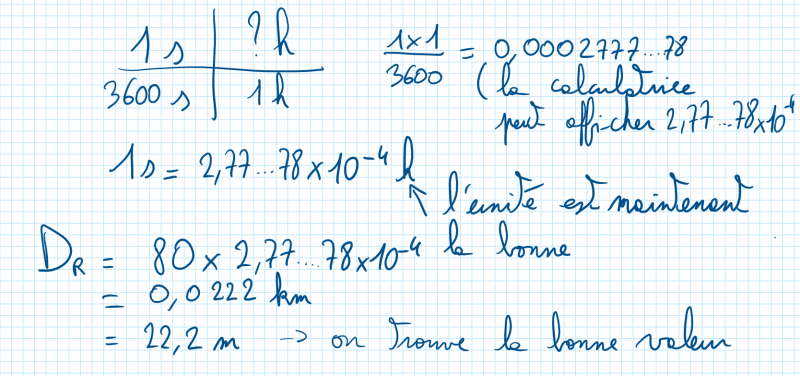 1 s | ? h
3600 s | 1 h
1×1/3600 = 0,0002777...78
(la calculatrice
peut afficher 2,77...78×10⁻⁴
1s = 2,77...78×10⁻⁴ h
↖ l'unité est maintenant
la bonne
D_R = 80 × 2,77....78×10⁻⁴
= 0,0222 km
= 22,2 m → on trouve la bonne valeur